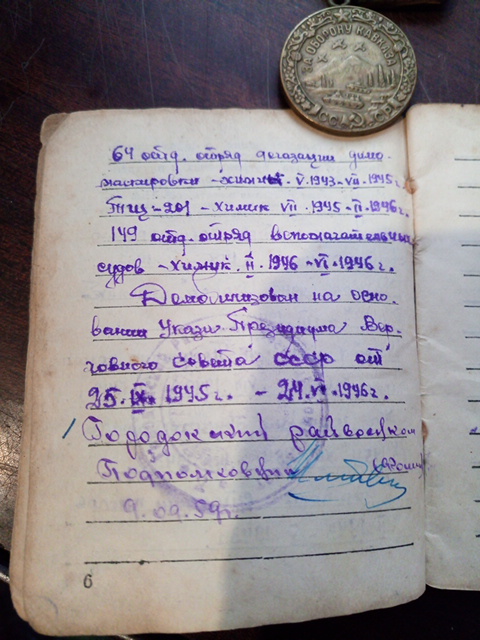 ЗА ОБОРОНУ КАВКАЗА
СССР
64 отд. отряд дегазации дымо
маскировки - химик. V. 1943 - VII. 1945г.
ТТЩ - 201 - химик VII 1945 - II. 1946г.
149 отд. отряд вспомагательных
судов - химик. II. 1946 - VI. 1946г.
Демобилизован на осно.
вании Указа Президиума Вер-
ховного совета СССР от
25. IX. 1945г. - 24. VI. 1946г.
Городокский райвоенком
Подполковник
9.09.59г.
6